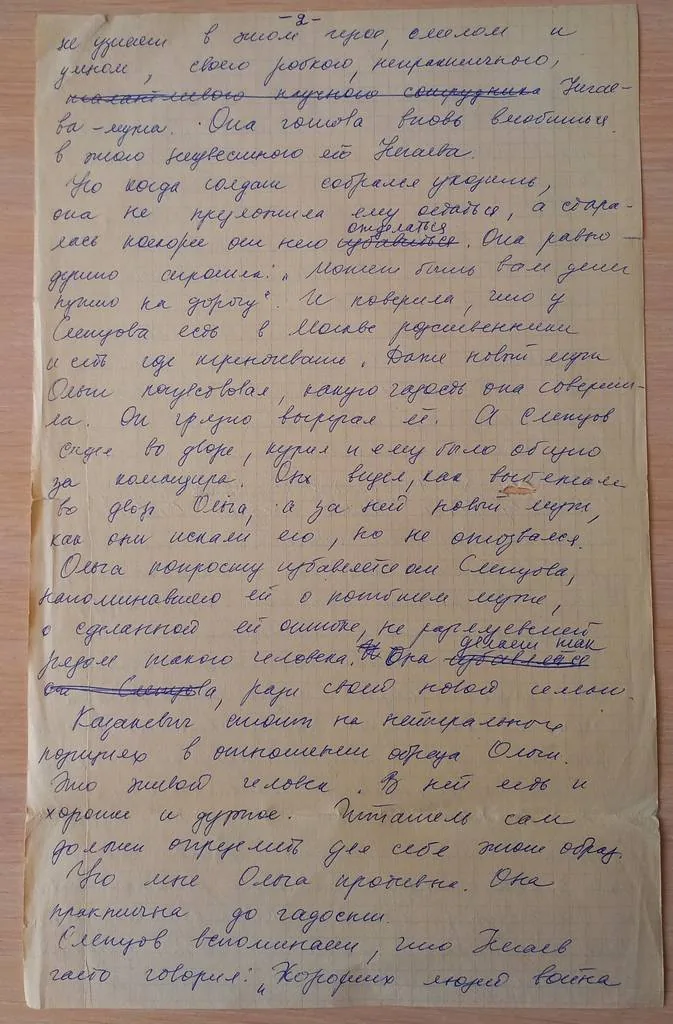 -2-
не узнает в этом герое, смелом и
умном, своего робкого, непрактичного,
талантливого научного сотрудника Нечае-
ва-мужа. Она готова вновь влюбиться
в этого неизвестного ей Нечаева.
Но когда солдат собрался уходить,
она не предложила ему остаться, а стара-
лась поскорее от него избавиться отделаться. Она равно-
душно спросила: "Может быть вам денег
нужно на дорогу". И поверила, что у
Слепцова есть в Москве родственники
и есть где переночевать. Даже новый муж
Ольги почувствовал, какую гадость она соверши-
ла. Он грубо выругал её. А Слепцов
сидел во дворе, курил и ему было обидно
за командира. Он видел, как выбежали
во двор Ольга, а за ней новый муж,
как они искали его, но не отозвался.
Ольга попросту избавляется от Слепцова,
напоминавшего ей о погибшем муже,
о сделанной ей ошибке, не разглядевшей
рядом такого человека. Она избавляется делает так
от Слепцова, ради своей новой семьи.
Казакевич стоит на нейтральных
позициях в отношении образа Ольги.
Это живой человек. В ней есть и
хорошее и дурное. Читатель сам
должен определить для себя этот образ.
Но мне Ольга противна. Она
практична до гадости.
Слепцов вспоминает, что Нечаев
часто говорил: "Хороших людей война